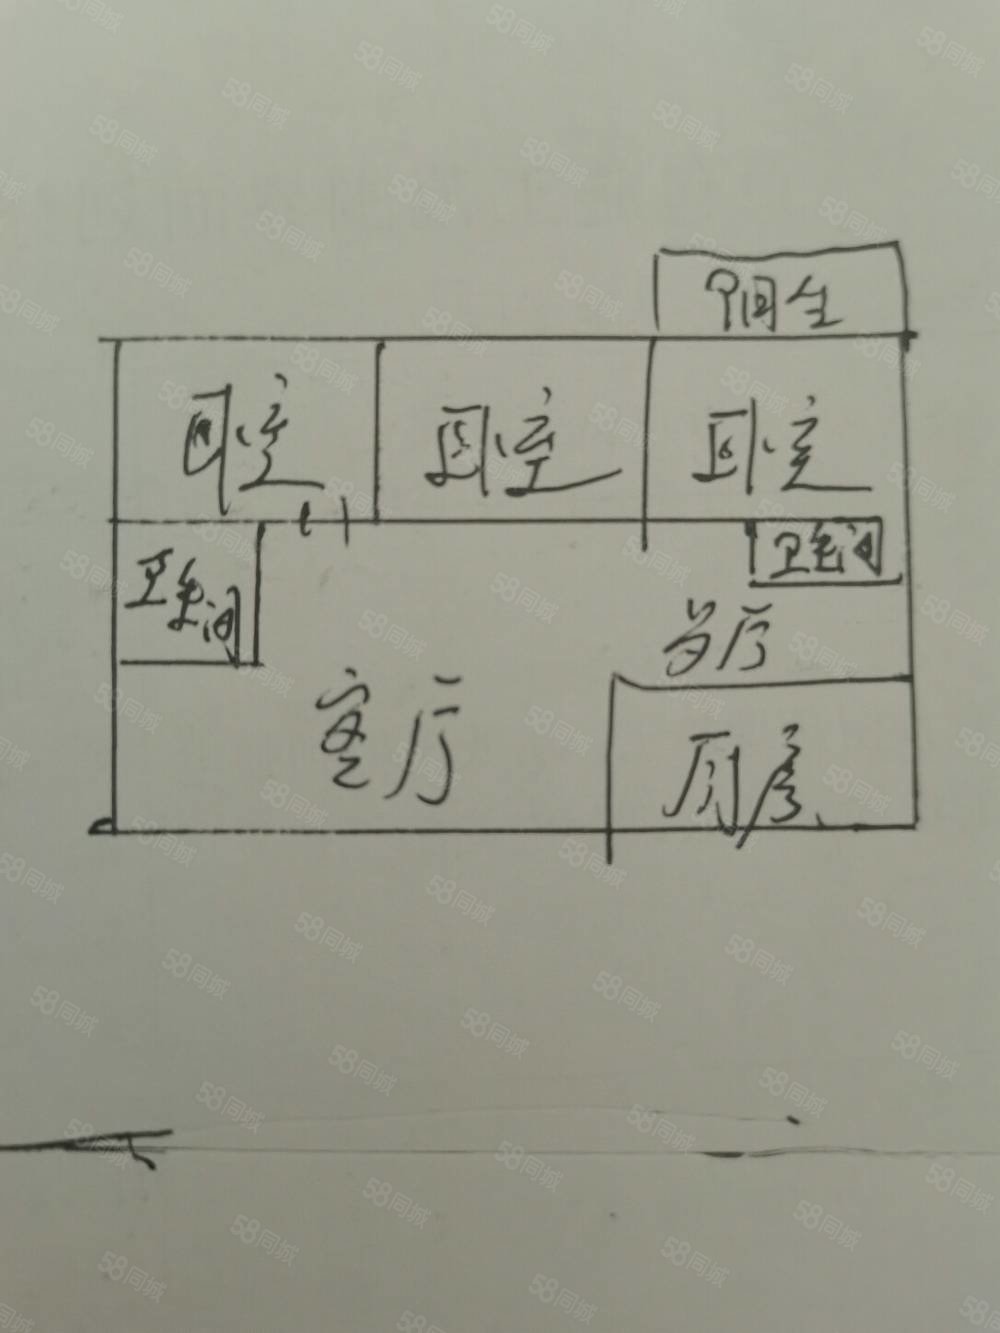 卧室
卧室
卧室
卫生间
卫生间
客厅
厨房
58同城